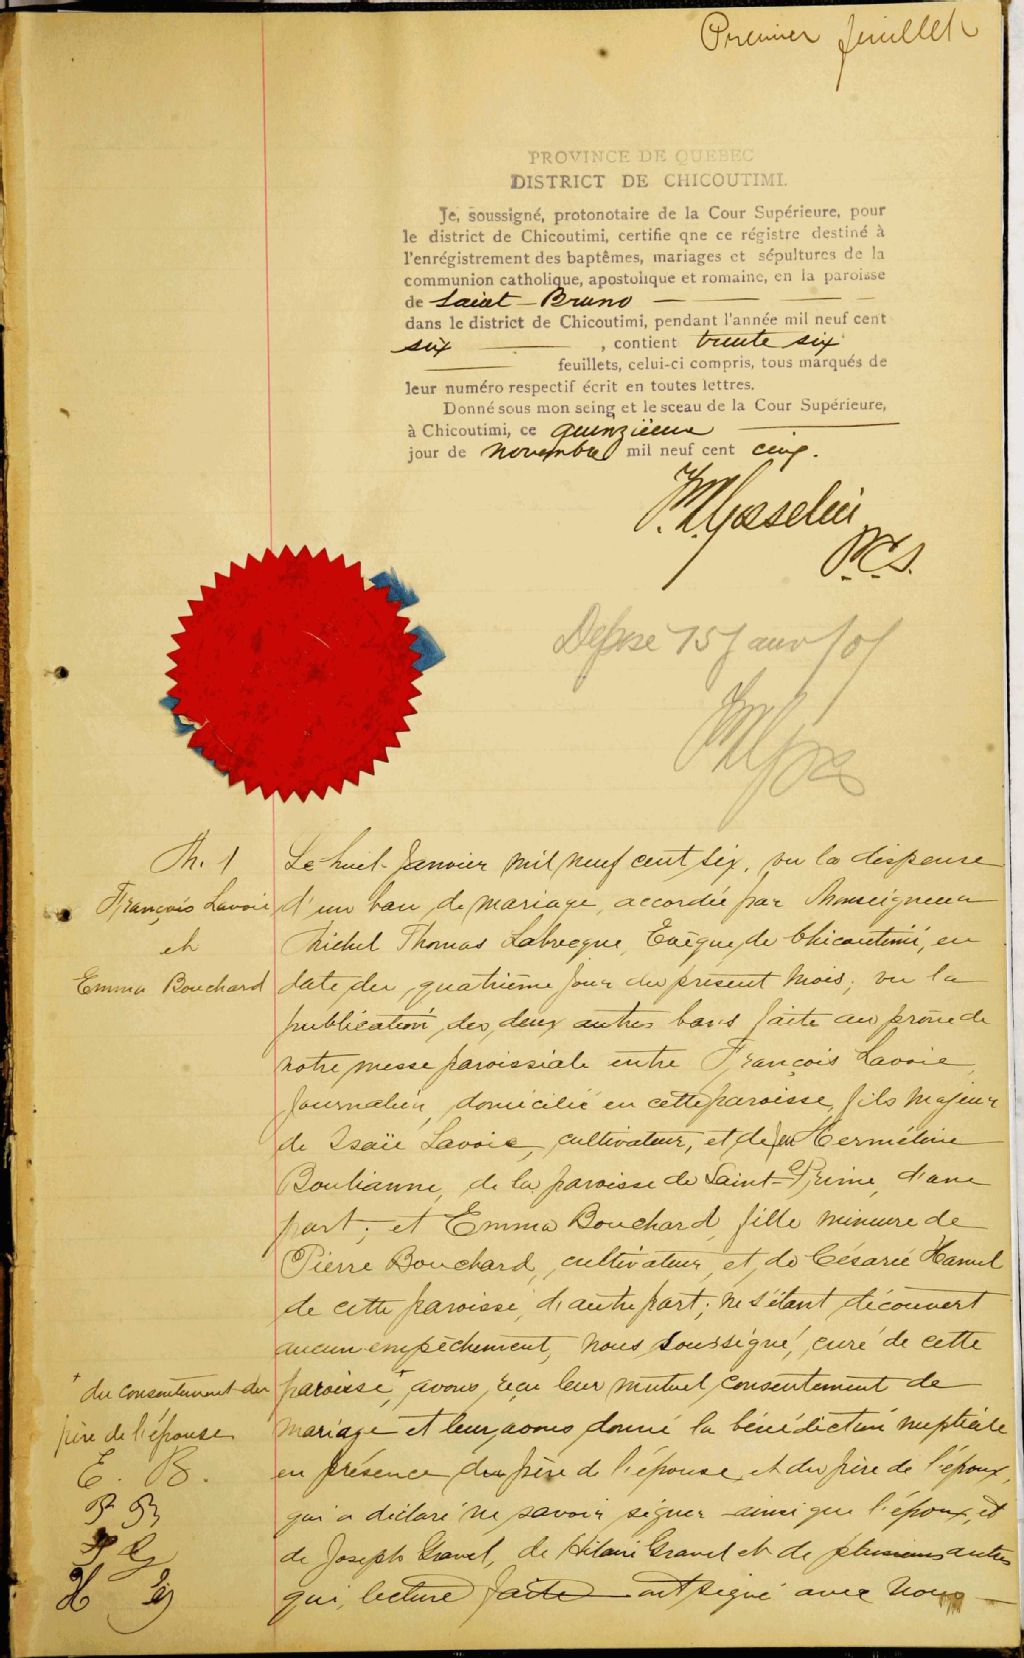 Premier feuillet
PROVINCE DE QUEBEC
DISTRICT DE CHICOUTIMI.
Je, soussigné, protonotaire de la Cour Supérieure, pour
le district de Chicoutimi, certifie qne ce régistre destiné à
l'enrégistrement des baptêmes, mariages et sépultures de la
communion catholique, apostolique et romaine, en la paroisse
de Saint-Bruno
dans le district de Chicoutimi, pendant l'année mil neuf cent
six , contient trente six
feuillets, celui-ci compris, tous marqués de
leur numéro respectif écrit en toutes lettres.
Donné sous mon seing et le sceau de la Cour Supérieure,
à Chicoutimi, ce quinzième
jour de novembre mil neuf cent cinq.
Gosselin
P.C.S.
15 janv
M. 1
François Lavoie
et
Emma Bouchard
Le huit Janvier mil neuf cent six, vu la dispense
d'un ban de mariage, accordée par Monseigneur
Michel Thomas Labrecque, Evêque de Chicoutimi, en
date du quatrième jour du présent mois; vu la
publication des deux autres bans faite au prône de
notre messe paroissiale entre François Lavoie,
Journalier, domicilié en cette paroisse, fils majeur
de Isaïe Lavoie, cultivateur, et de feu Herméline
Boulianne, de la paroisse de Saint-Prime, d'une
part; et Emma Bouchard, fille mineure de
Pierre Bouchard, cultivateur, et de Césarée Hamel
de cette paroisse, d'autre part; ne s'étant découvert
aucun empêchement, nous soussigné, curé de cette
paroisse,+ avons reçu leur mutuel consentement de
mariage et leur avons donné la bénédiction nuptiale
en présence du père de l'épouse et du père de l'époux,
qui a déclaré ne savoir signer ainsi que l'époux, et
de Joseph Gravel, de Hilaire Gravel et de plusieurs autres
qui, lecture faite ont signé avec Nous
+ du consentement du
père de l'épouse
E. B.
P B
J G
H G